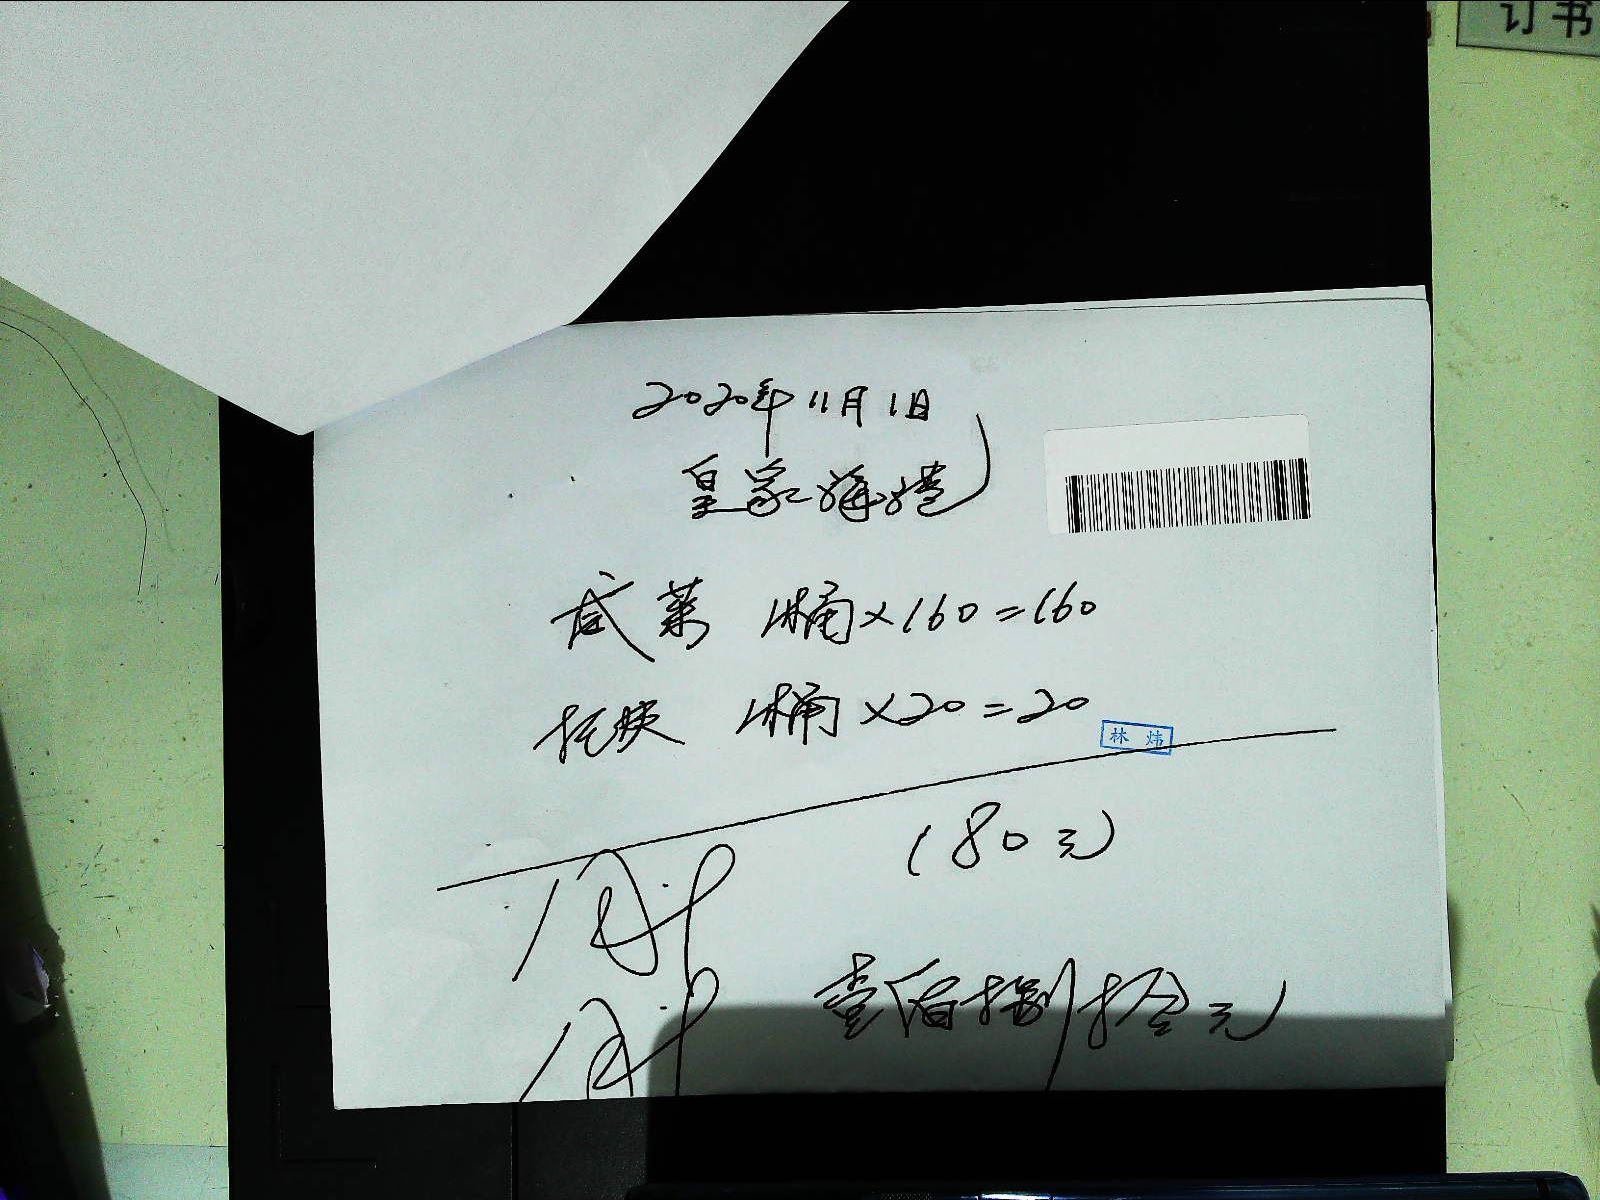 订书
2020年11月1日
皇家海湾
咸菜 1桶×160=160
1桶×20=20
林炜
180元
壹佰捌拾元